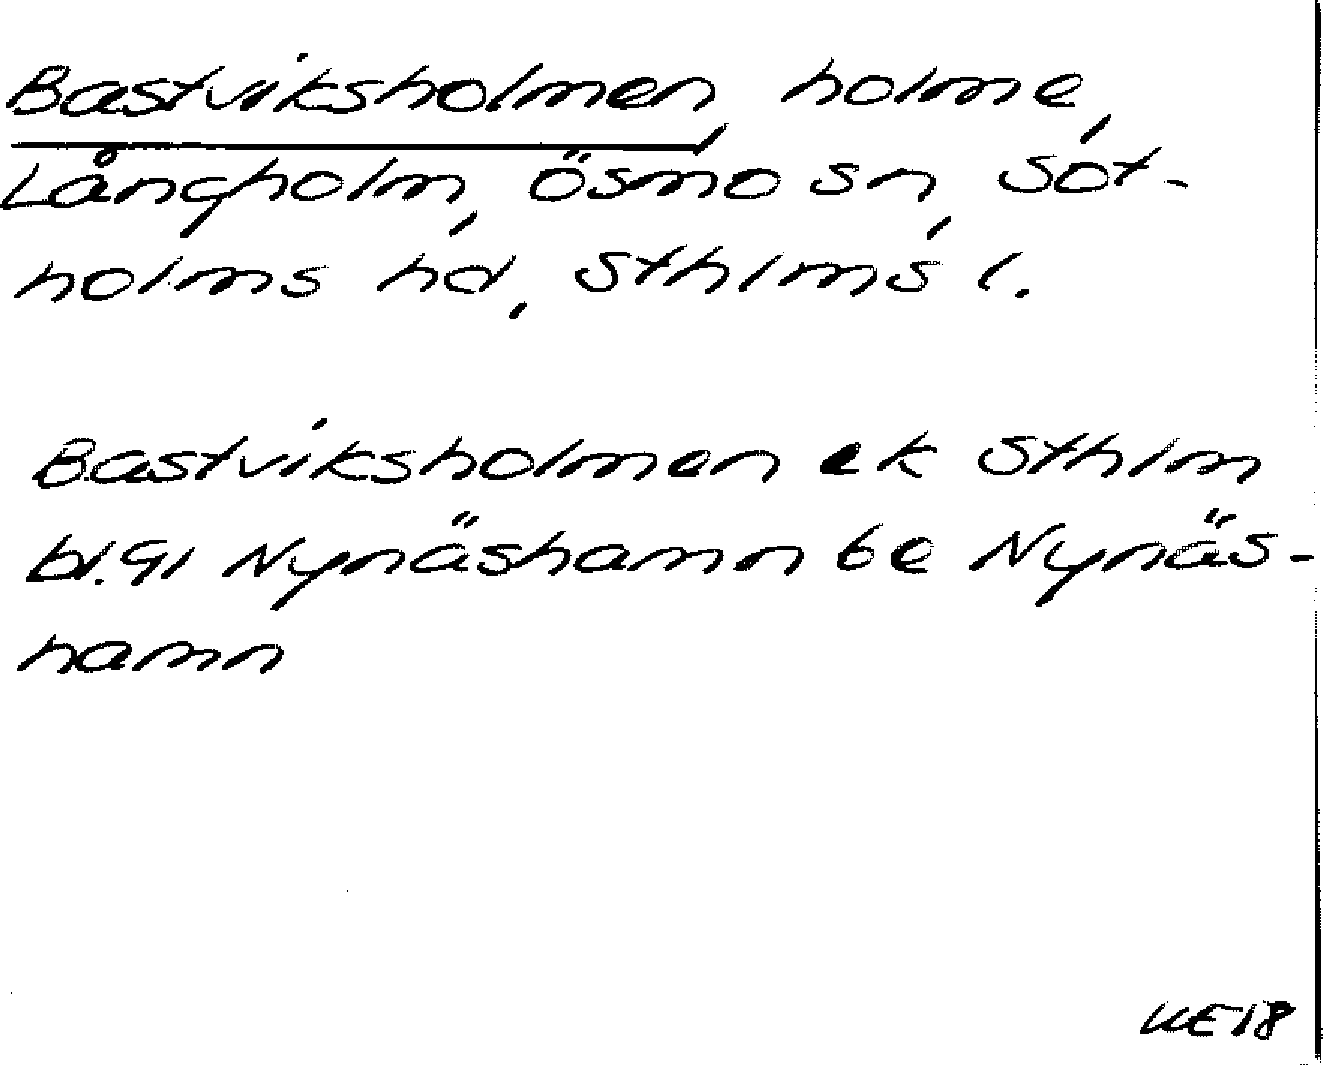 Bastviksholmen, holme,
Långholm, Ösmo sn, Sot-
holms hd, Sthlms l.
Bastviksholmen ek Sthlm
bl.91 Nynäshamn 6e Nynäs-
hamn